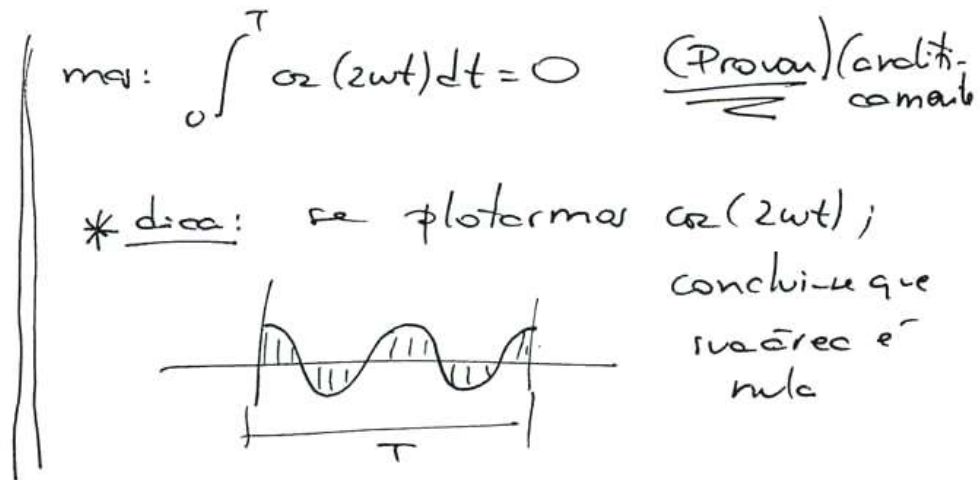 mas: ∫₀ᵀ cos(2ωt)dt = 0 (Provar) (analiti-
camente
* dica: se plotarmos cos(2ωt);
conclui-se que
sua área é
nula
T